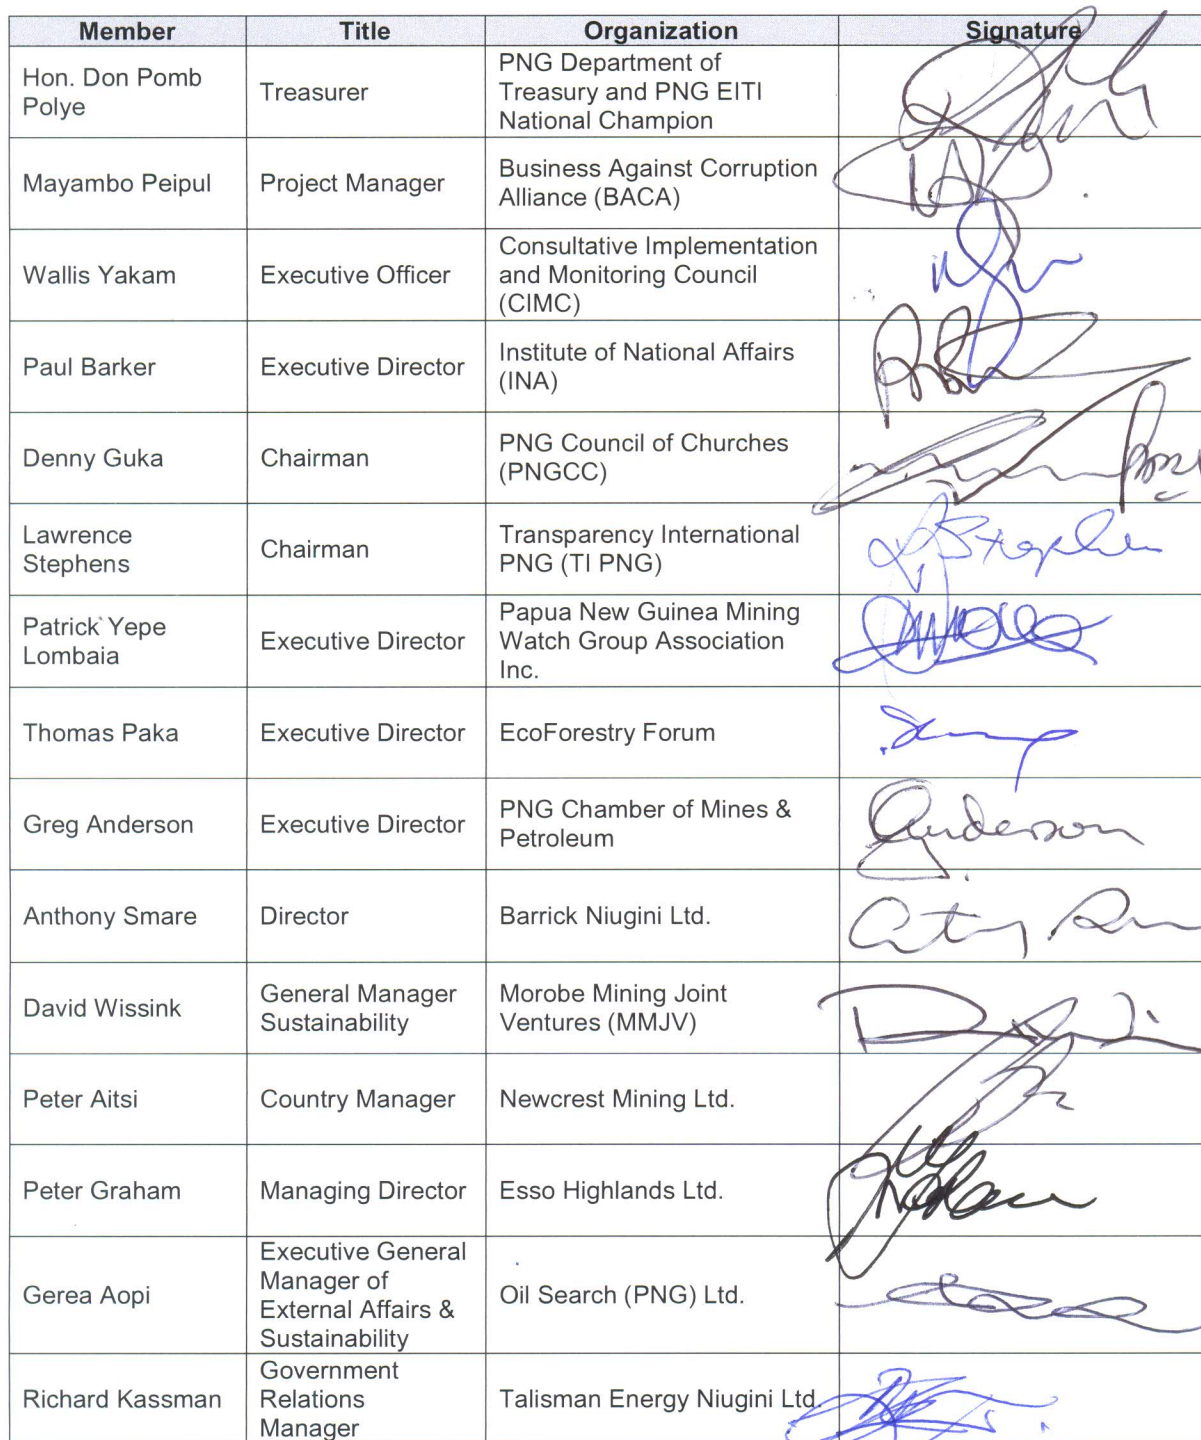 Member Title Organization Signature
Hon. Don Pomb
Polye
Treasurer
PNG Department of
Treasury and PNG EITI
National Champion
Mayambo Peipul
Project Manager
Business Against Corruption
Alliance (BACA)
Wallis Yakam
Executive Officer
Consultative Implementation
and Monitoring Council
(CIMC)
Paul Barker
Executive Director
Institute of National Affairs
(INA)
Denny Guka
Chairman
PNG Council of Churches
(PNGCC)
Lawrence
Stephens
Chairman
Transparency International
PNG (TI PNG)
Patrick Yepe
Lombaia
Executive Director
Papua New Guinea Mining
Watch Group Association
Inc.
Thomas Paka
Executive Director
EcoForestry Forum
Greg Anderson
Executive Director
PNG Chamber of Mines &
Petroleum
Anderson
Anthony Smare
Director
Barrick Niugini Ltd.
David Wissink
General Manager
Sustainability
Morobe Mining Joint
Ventures (MMJV)
Peter Aitsi
Country Manager
Newcrest Mining Ltd.
Peter Graham
Managing Director
Esso Highlands Ltd.
Gerea Aopi
Executive General
Manager of
External Affairs &
Sustainability
Oil Search (PNG) Ltd.
Richard Kassman
Government
Relations
Manager
Talisman Energy Niugini Ltd.